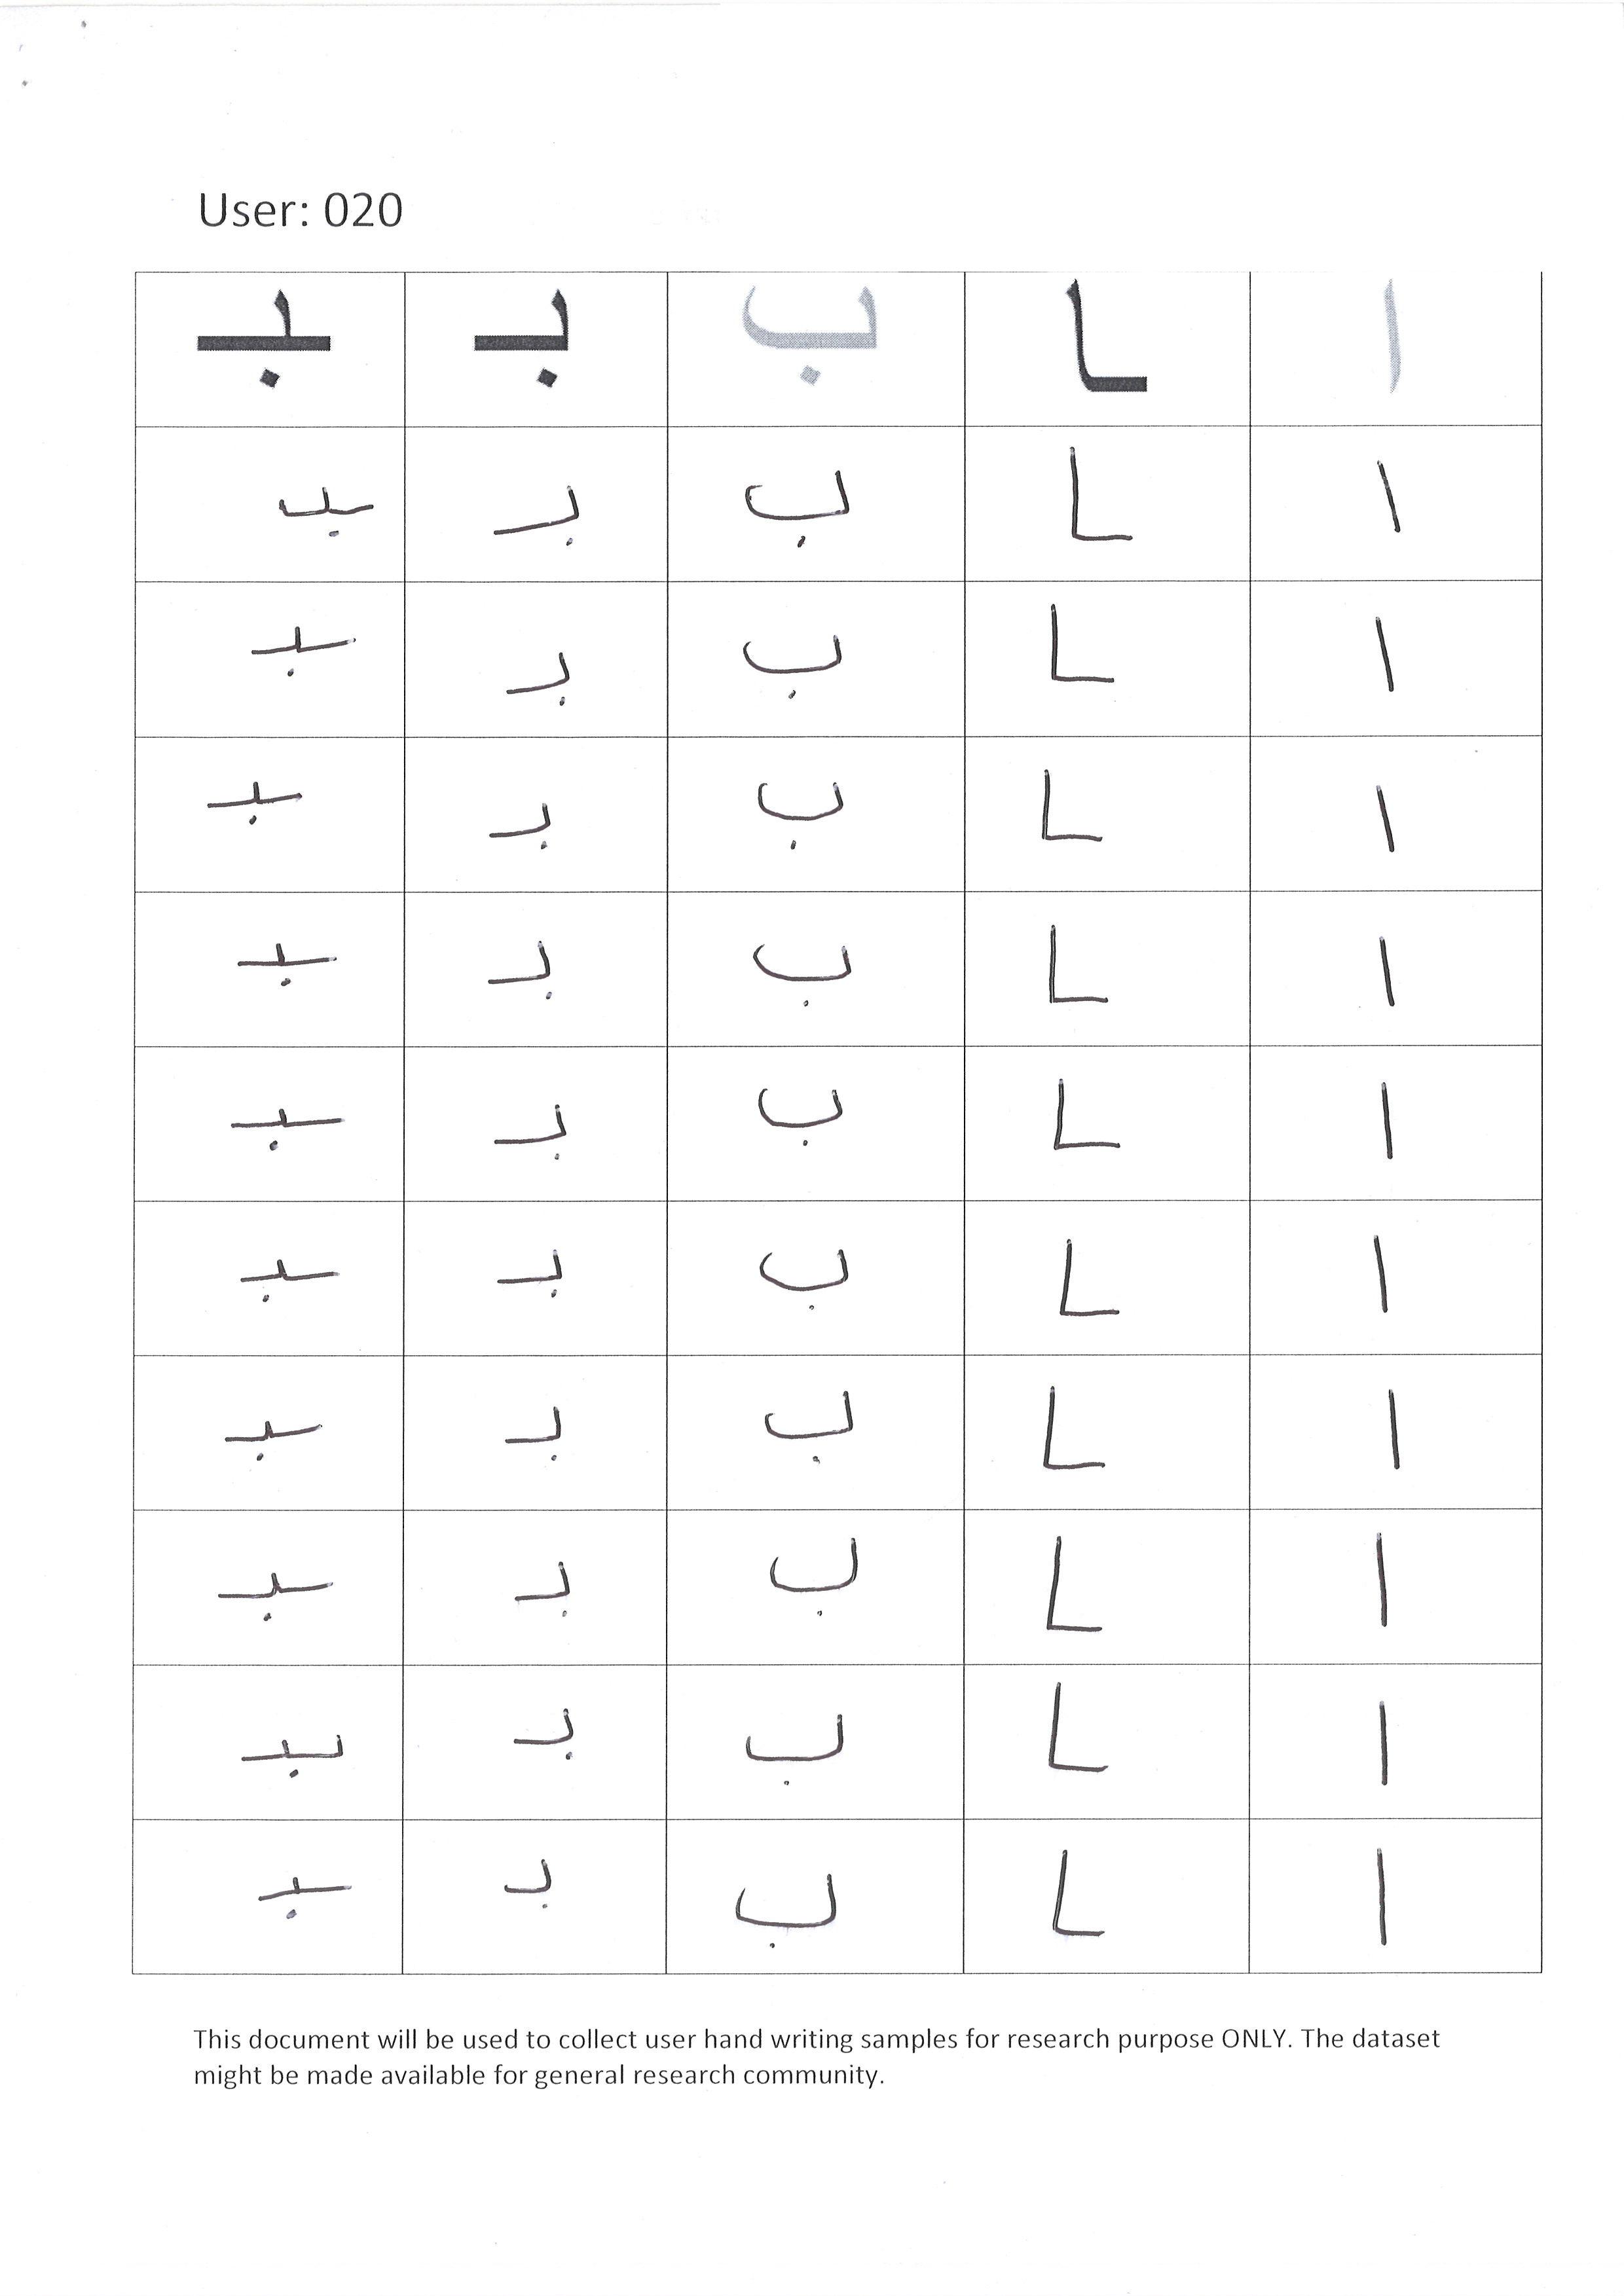 User: 020
ا ـا ب بـ ـبـ
ا ـا ب بـ ـبـ
ا ـا ب بـ ـبـ
ا ـا ب بـ ـبـ
ا ـا ب بـ ـبـ
ا ـا ب بـ ـبـ
ا ـا ب بـ ـبـ
ا ـا ب بـ ـبـ
ا ـا ب بـ ـبـ
ا ـا ب بـ ـبـ
ا ـا ب بـ ـبـ
This document will be used to collect user hand writing samples for research purpose ONLY. The dataset
might be made available for general research community.